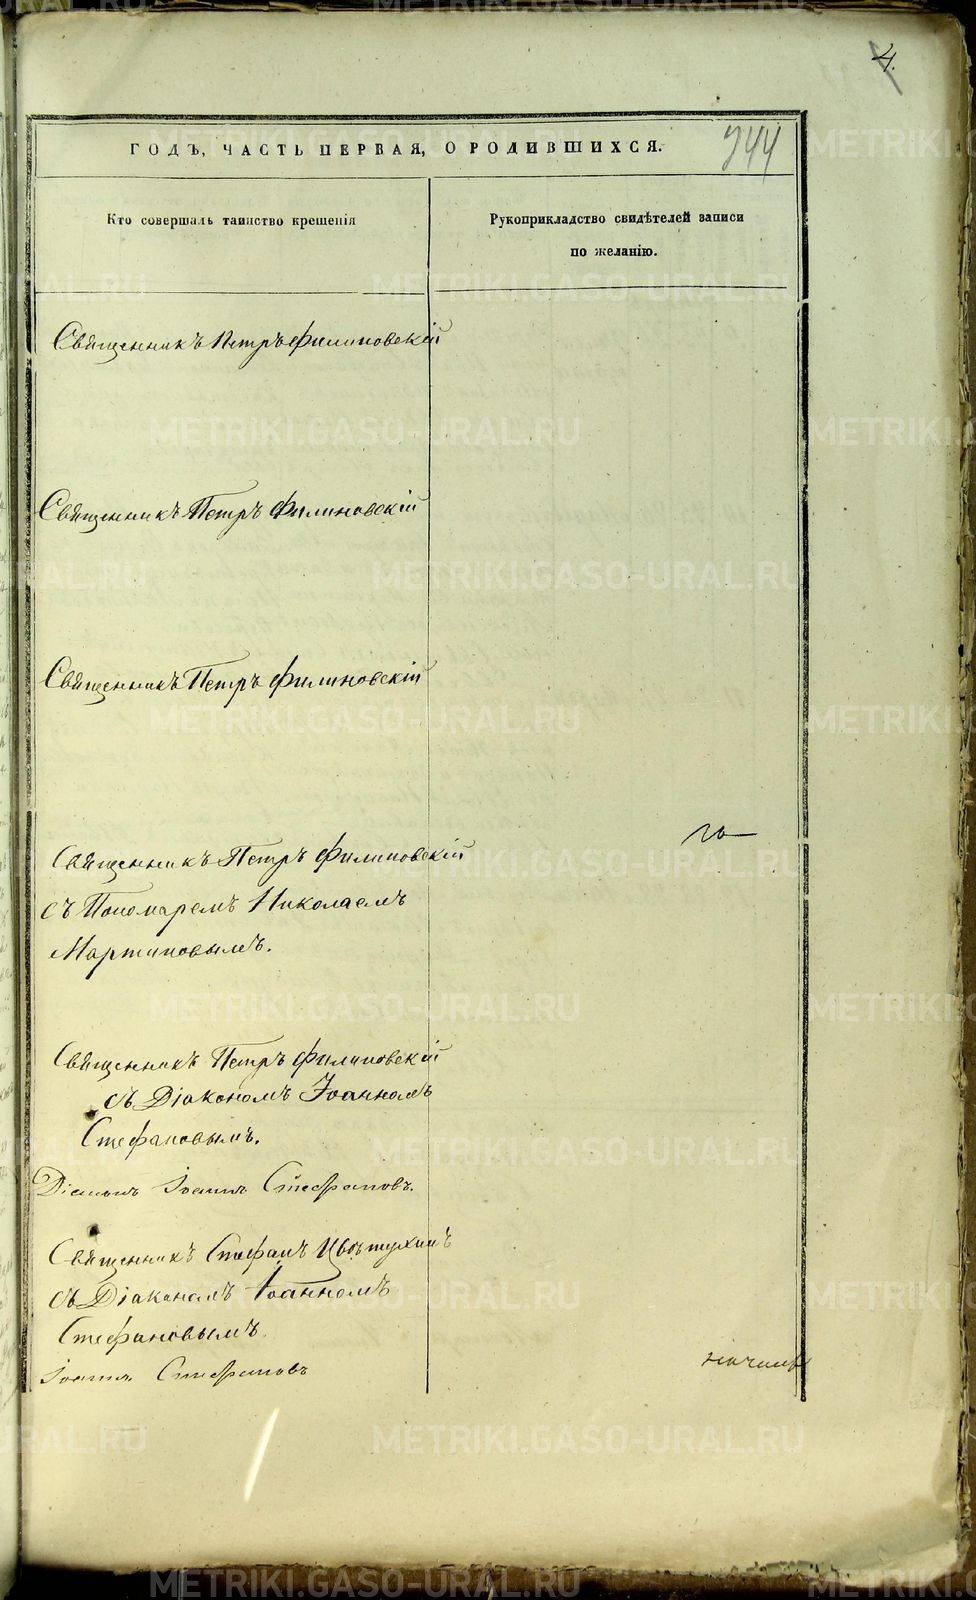 4.
ГОДЪ, ЧАСТЬ ПЕРВАЯ, О РОДИВШИХСЯ.
344
Кто совершалъ таинство крещенія
Рукоприкладство свидѣтелей записи
по желанію.
Священникъ Петръ Филиповскій
Священникъ Петръ Филиновскій
Священникъ Петръ Филиновскій
Священникъ Петръ Филиповскій
съ Пономаремъ Николаемъ
Мартиновымъ.
Священникъ Петръ Филиповскій
съ Діакономъ Іоанномъ
Стефановымъ.
Діаконъ Іоаннъ Стефановъ.
Священникъ Стефанъ Цвѣтухинъ
съ Діакономъ Іоанномъ
Стефановымъ
Іоаннъ Стефановъ
METRIKI.GASO-URAL.RU